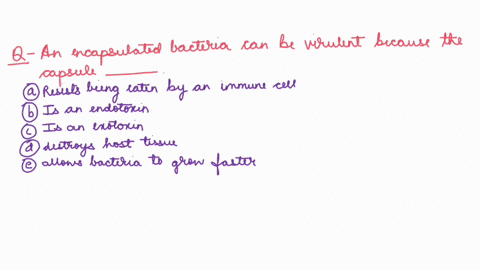 Q - An encapsulated bacteria can be virulent because the
capsule ______.
(a) Resists being eaten by an immune cell
(b) Is an endotoxin
(c) Is an exotoxin
(d) destroys host tissue
(e) allows bacteria to grow faster